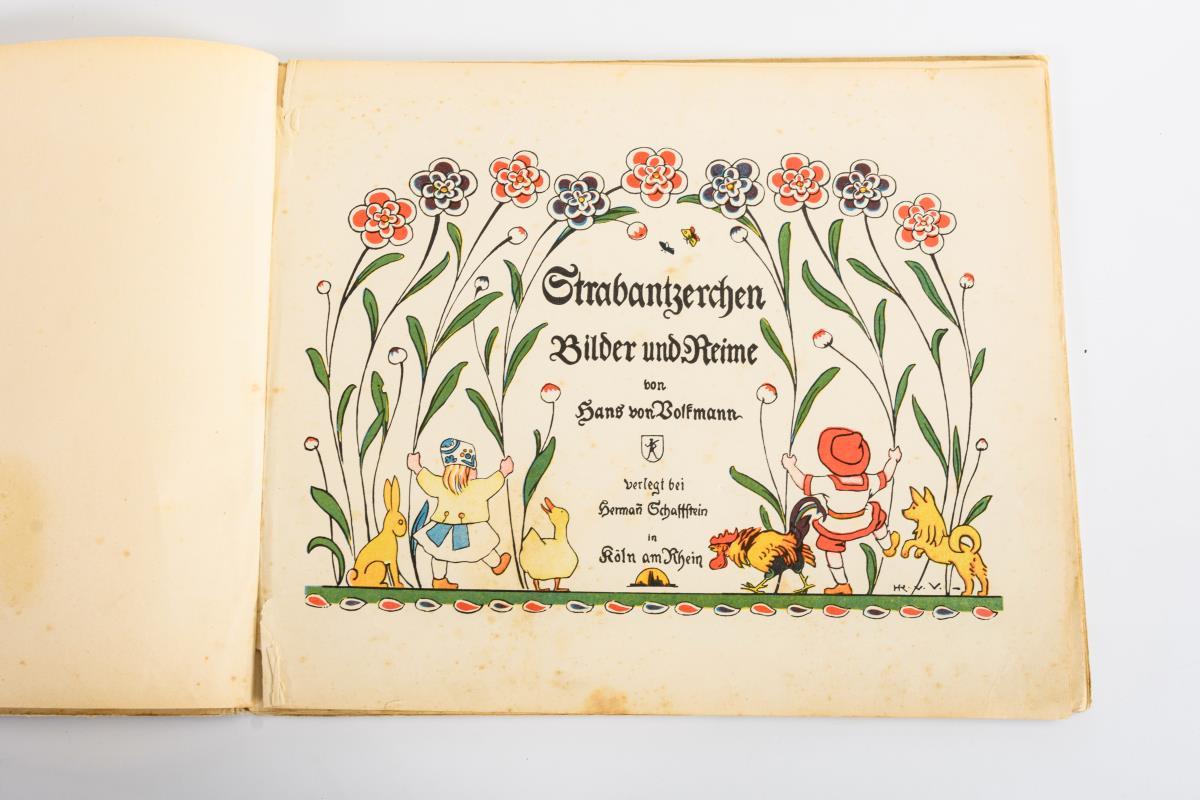 Strabantzerchen
Bilder und Reime
von
Hans von Volkmann
verlegt bei
Hermañ Schaffstein
in
Köln am Rhein
H.v.V.